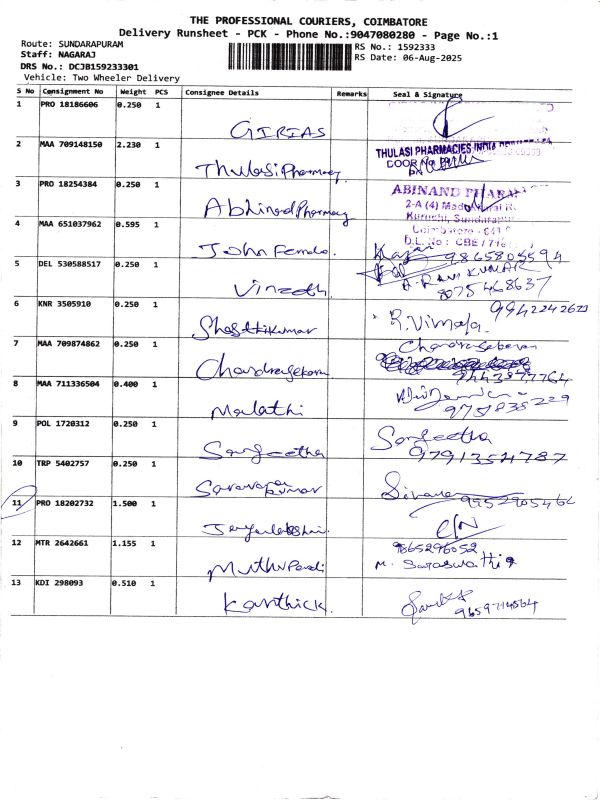 THE PROFESSIONAL COURIERS, COIMBATORE
Delivery Runsheet - PCK - Phone No.:9047080280 - Page No.:1
Route: SUNDARAPURAM
Staff: NAGARAJ
DRS No.: DCJB159233301
Vehicle: Two Wheeler Delivery
RS No.: 1592333
RS Date: 06-Aug-2025
S No Consignment No Weight PCS Consignee Details Remarks Seal & Signature
1 PRO 18186606 0.250 1 GIRIAS
2 MAA 709148150 2.230 1 Thulasi Pharmacy THULASI PHARMACIES INDIA
DOOR No
3 PRO 18254384 0.250 1 Abhinad Pharmacy ABINAND PHARMA
2-A (4) Madukarai R
Kuruchi, Sundarapur
Coimbatore - 641 0
D.L. No : CBE/7716
4 MAA 651037962 0.595 1 John 9865805594
5 DEL 530588517 0.250 1 Vinoth A. RAVI KUMAR
8075468637
6 KNR 3505910 0.250 1 Shasthikumar R. Vimala 9942242623
7 MAA 709874862 0.250 1 Chandrasekaran Chandrasekaran
9443877764
8 MAA 711336504 0.400 1 Malathi
9751835229
9 POL 1720312 0.250 1 Sangeetha Sangeetha
9791354787
10 TRP 5402757 0.250 1 Saravana kumar
11 PRO 18202732 1.500 1 Jeyalakshmi
12 MTR 2642661 1.155 1 Muthu Pandi 9865296052
M. Saraswathi
13 KDI 298093 0.510 1 Karthick
9659714564